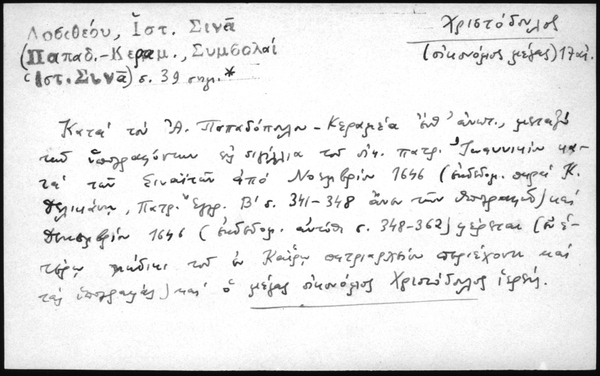 Δοσιθέου, Ἱστ. Σινᾶ
Χριστόδουλος
(Παπαδ.-Κεραμ., Συμβολαί
(οἰκονόμος μέγας) 17 αἰ.
Ἱστ. Σινᾶ) σ. 39 σημ. *
Κατὰ τὸν Ἀ. Παπαδόπουλον-Κεραμέα ἔνθ' ἀνωτ., μεταξὺ
τῶν ὑπογραψάντων σιγίλλια τοῦ οἰκ. πατρ. Ἰωαννικίου κα-
τὰ τῶν Σιναϊτῶν ἀπὸ Νοεμβρίου 1646 (ἐκδεδομ. παρὰ Κ.
Δελικάνη, Πατρ. Ἔγγρ. Β' σ. 341-348 ἄνευ τῶν ὑπογραφῶν) καὶ
Δεκεμβρίου 1646 (ἐκδεδομ. αὐτόθι σ. 348-362) φέρεται (ἐν ἑ-
τέρῳ κώδικι τοῦ ἐν Καΐρῳ πατριαρχείου περιέχοντι καὶ
τὰς ὑπογραφάς) καὶ ὁ μέγας οἰκονόμος Χριστόδουλος ἱερεύς.